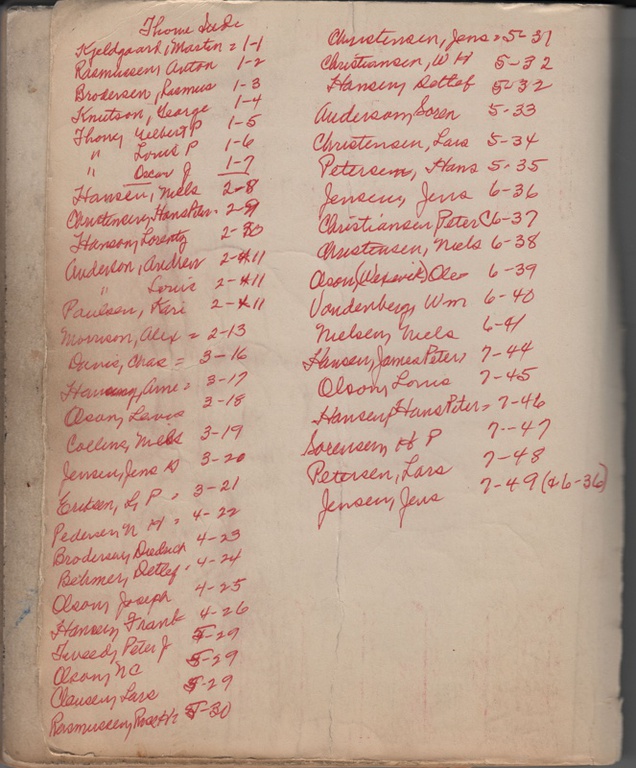 Thorne Side
Kjeldgaard, Martin = 1-1
Rasmussen, Anton 1-2
Brodersen, Rasmus 1-3
Knutson, George 1-4
Thoney P 1-5
" Louis P 1-6
" Oscar J 1-7
Hansen, Niels 2-8
Christensen, Hans Peter. 2-9
Hanson, Lorentz 2-
Anderson, Andrew 2-11
" Louis 2-11
Paulsen, Karl 2-11
Morrison, Alex = 2-13
Davis, Chas = 3-16
Arne = 3-17
Olson, Lewis 3-18
Collins, Niels 3-19
Jensen, Jens 3-20
Eriksen, L, P = 3-21
Pedersen N H = 4-22
Brodersen, Diedrich 4-23
Böhmer, Detlef = 4-24
Olson, Joseph 4-25
Hansen, Frank 4-26
Tweedy, Peter J 5-29
Olson, NC 5-29
Clausen, Lars 5-29
Rasmussen, 5-30
Christensen, Jens = 5-31
Christiansen, W H 5-32
Hansen, Detlef 5-32
Anderson, Soren 5-33
Christensen, Lars 5-34
Petersen, Hans 5-35
Jensen, Jens 6-36
Christiansen Peter C 6-37
Christensen, Niels 6-38
Olson () Ole 6-39
Vandenberg, Wm 6-40
Nielsen, Niels 6-41
Hansen, James Peter, 7-44
Olson, Louis 7-45
Hansen, Hans Peter = 7-46
Sorensen, H P 7-47
Petersen, Lars 7-48
Jensen, Jens 7-49 (& 6-36)